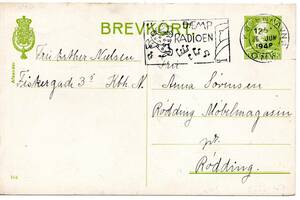 BREVKORT
DEMP
RADIOEN
Afsender:
Fru Esther Nielsen
Fiskergade 3⁵ Kbh. N.
Fru
Anna Sørensen
Rødding Møbelmagasin
pr.
Rødding.